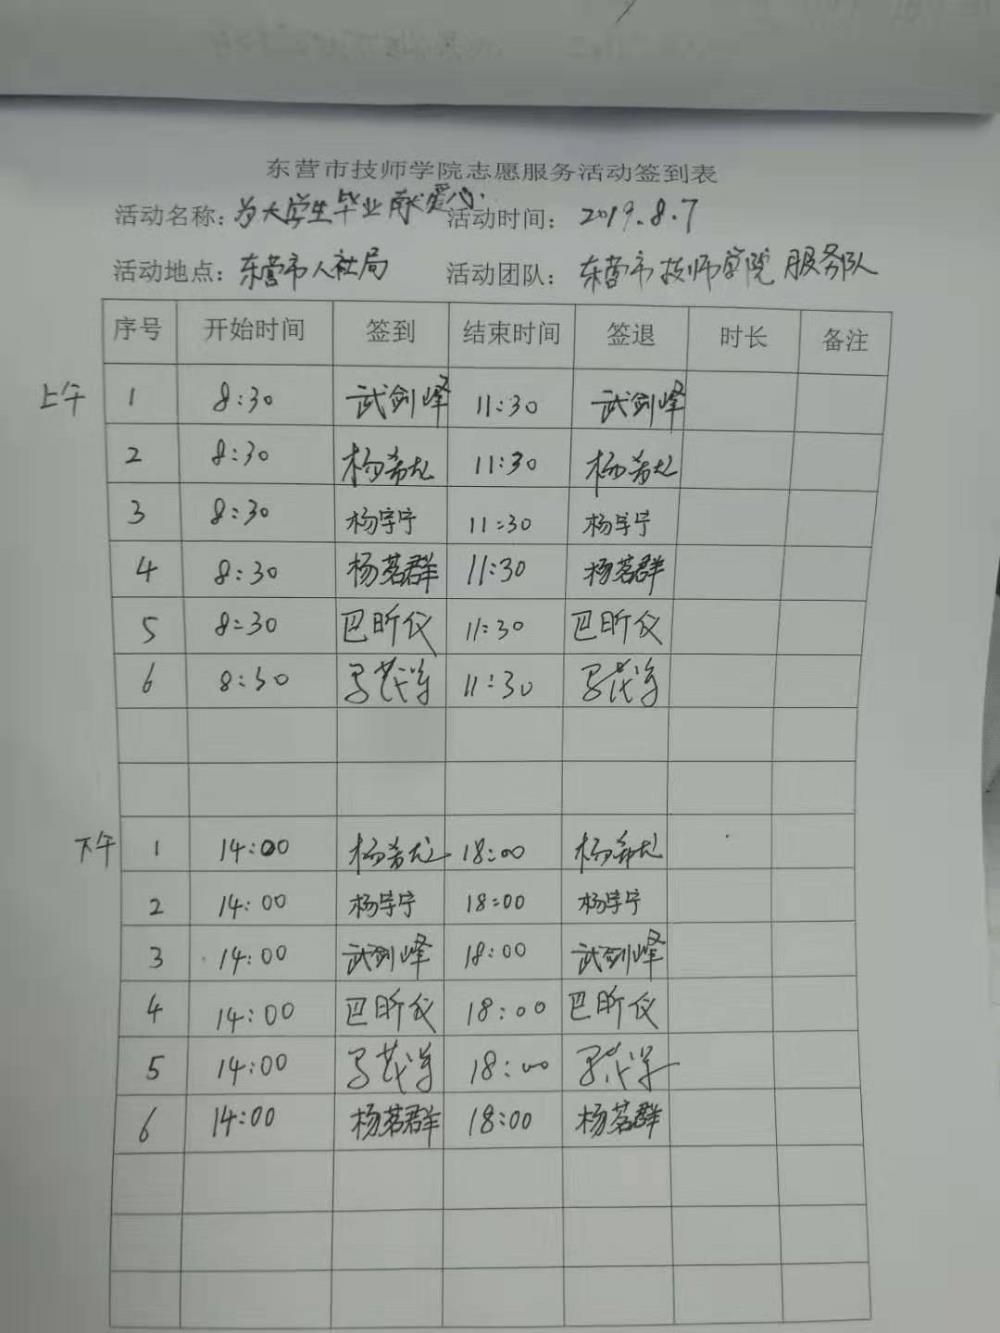 东营市技师学院志愿服务活动签到表
活动名称：为大学生毕业献爱心. 活动时间：2019.8.7
活动地点：东营市人社局 活动团队：东营市技师学院服务队
序号 开始时间 签到 结束时间 签退 时长 备注
上午 1 8:30 武剑峰 11:30 武剑峰
2 8:30 杨希龙 11:30 杨希龙
3 8:30 杨宇宁 11:30 杨宇宁
4 8:30 杨茗群 11:30 杨茗群
5 8:30 巴昕仪 11:30 巴昕仪
6 8:30 11:30
下午 1 14:00 杨希龙 18:00 杨希龙
2 14:00 杨宇宁 18:00 杨宇宁
3 14:00 武剑峰 18:00 武剑峰
4 14:00 巴昕仪 18:00 巴昕仪
5 14:00 18:00
6 14:00 杨茗群 18:00 杨茗群